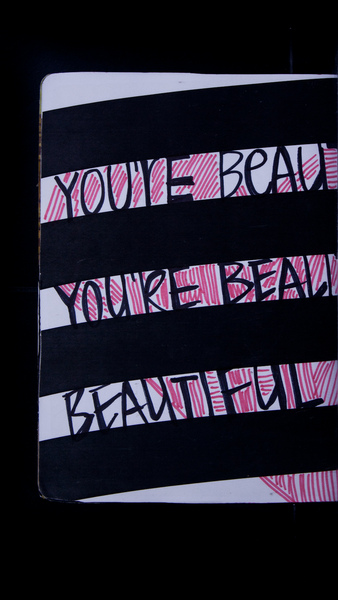 YOU'RE BEAU
YOU'RE BEAU
BEAUTIFUL